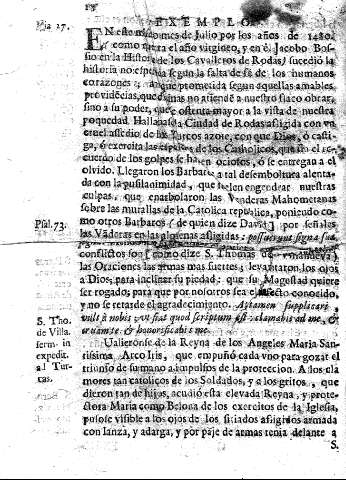 EXEMPLO.
Dia 27.
EN este mismo mes de Julio por los años de 1480.
como narra el año virgineo, y en él Jacobo Bos-
sio en la Historia de los Cavalleros de Rodas, sucedió la
historia no esperada segun la falta de fé de los humanos
corazones, aunque prometida segun aquellas amables
providécias, que Dios no atiende a nuestro flaco obrar,
sino a su poder, que ostenta mayor a la vista de nuestra
poquedad. Hallavase la Ciudad de Rodas afligida con vn
cruel assedio de los Turcos azote, con que Dios, ó casti-
ga, ó exercita las espaldas de los Catholicos, que si el re-
cuerdo de los golpes se hazen ociosos, ó se entregan a el
olvido. Llegaron los Barbaros a tal desemboltura alenta-
da con la pusilanimidad, que suelen engendrar nuestras
culpas, que enarbolaron las Vanderas Mahometanas
sobre las murallas de la Catolica republica, poniendo co-
mo otros Barbaros (de quien dize David) por señales
Psal. 73.
las Vãderas en las almenas afligidas: possuerunt signa sua
conflictos son (como dize S. Thomas de Villanueva)
las Oraciones las armas mas fuertes; levantaron los ojos
a Dios, para inclinar su piedad; que su Magestad quiere
ser rogado, para que por nosotros sea el afecto conocido,
y no se retarde el agradecimiento. Attamen supplicari
vult à nobis, vt fiat quod scriptum est: clamabis ad me, &
eruam te & honorificabis me.
S. Tho.
de Villa.
serm. in
expedit.
ad Tur-
cas.
Ualieronse de la Reyna de los Angeles Maria San-
tissima Arco Iris, que empuñó cada vno para gozar el
triunfo de su mano a impulsos de la proteccion. A los cla-
mores tan catolicos de los Soldados, y a los gritos, que
dieron tan de hijas, acudió esta elevada Reyna, y prote-
ctora Maria como Belona de los exercitos de la Iglesia,
pusose visible a los ojos de los sitiados afligidos armada
con lanza, y adarga, y por paje de armas tenia delante a
S.